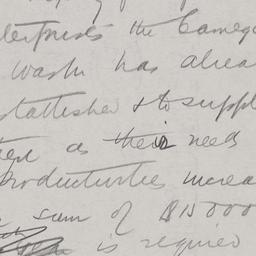 the Carneg
Wash has alrea
established & to suppl
as their need
Productivities increa
sum of $15000
is required